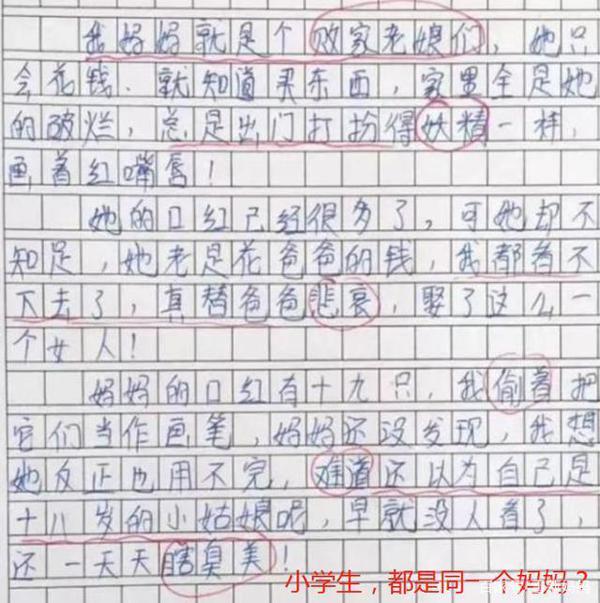 我妈妈就是个败家老娘们，她只
会花钱、就知道买东西，家里全是她
的破烂，总是出门打扮得妖精一样，
画着红嘴唇！
她的口红已经很多了，可她却不
知足，她老是花爸爸的钱，我都看不
下去了，真替爸爸悲哀，娶了这么一
个女人！
妈妈的口红有十九只，我偷着把
它们当作画笔，妈妈还没发现，我想
她反正也用不完，难道还以为自己是
十八岁的小姑娘呢，早就没人看了，
还一天天瞎臭美！
小学生，都是同一个妈妈？